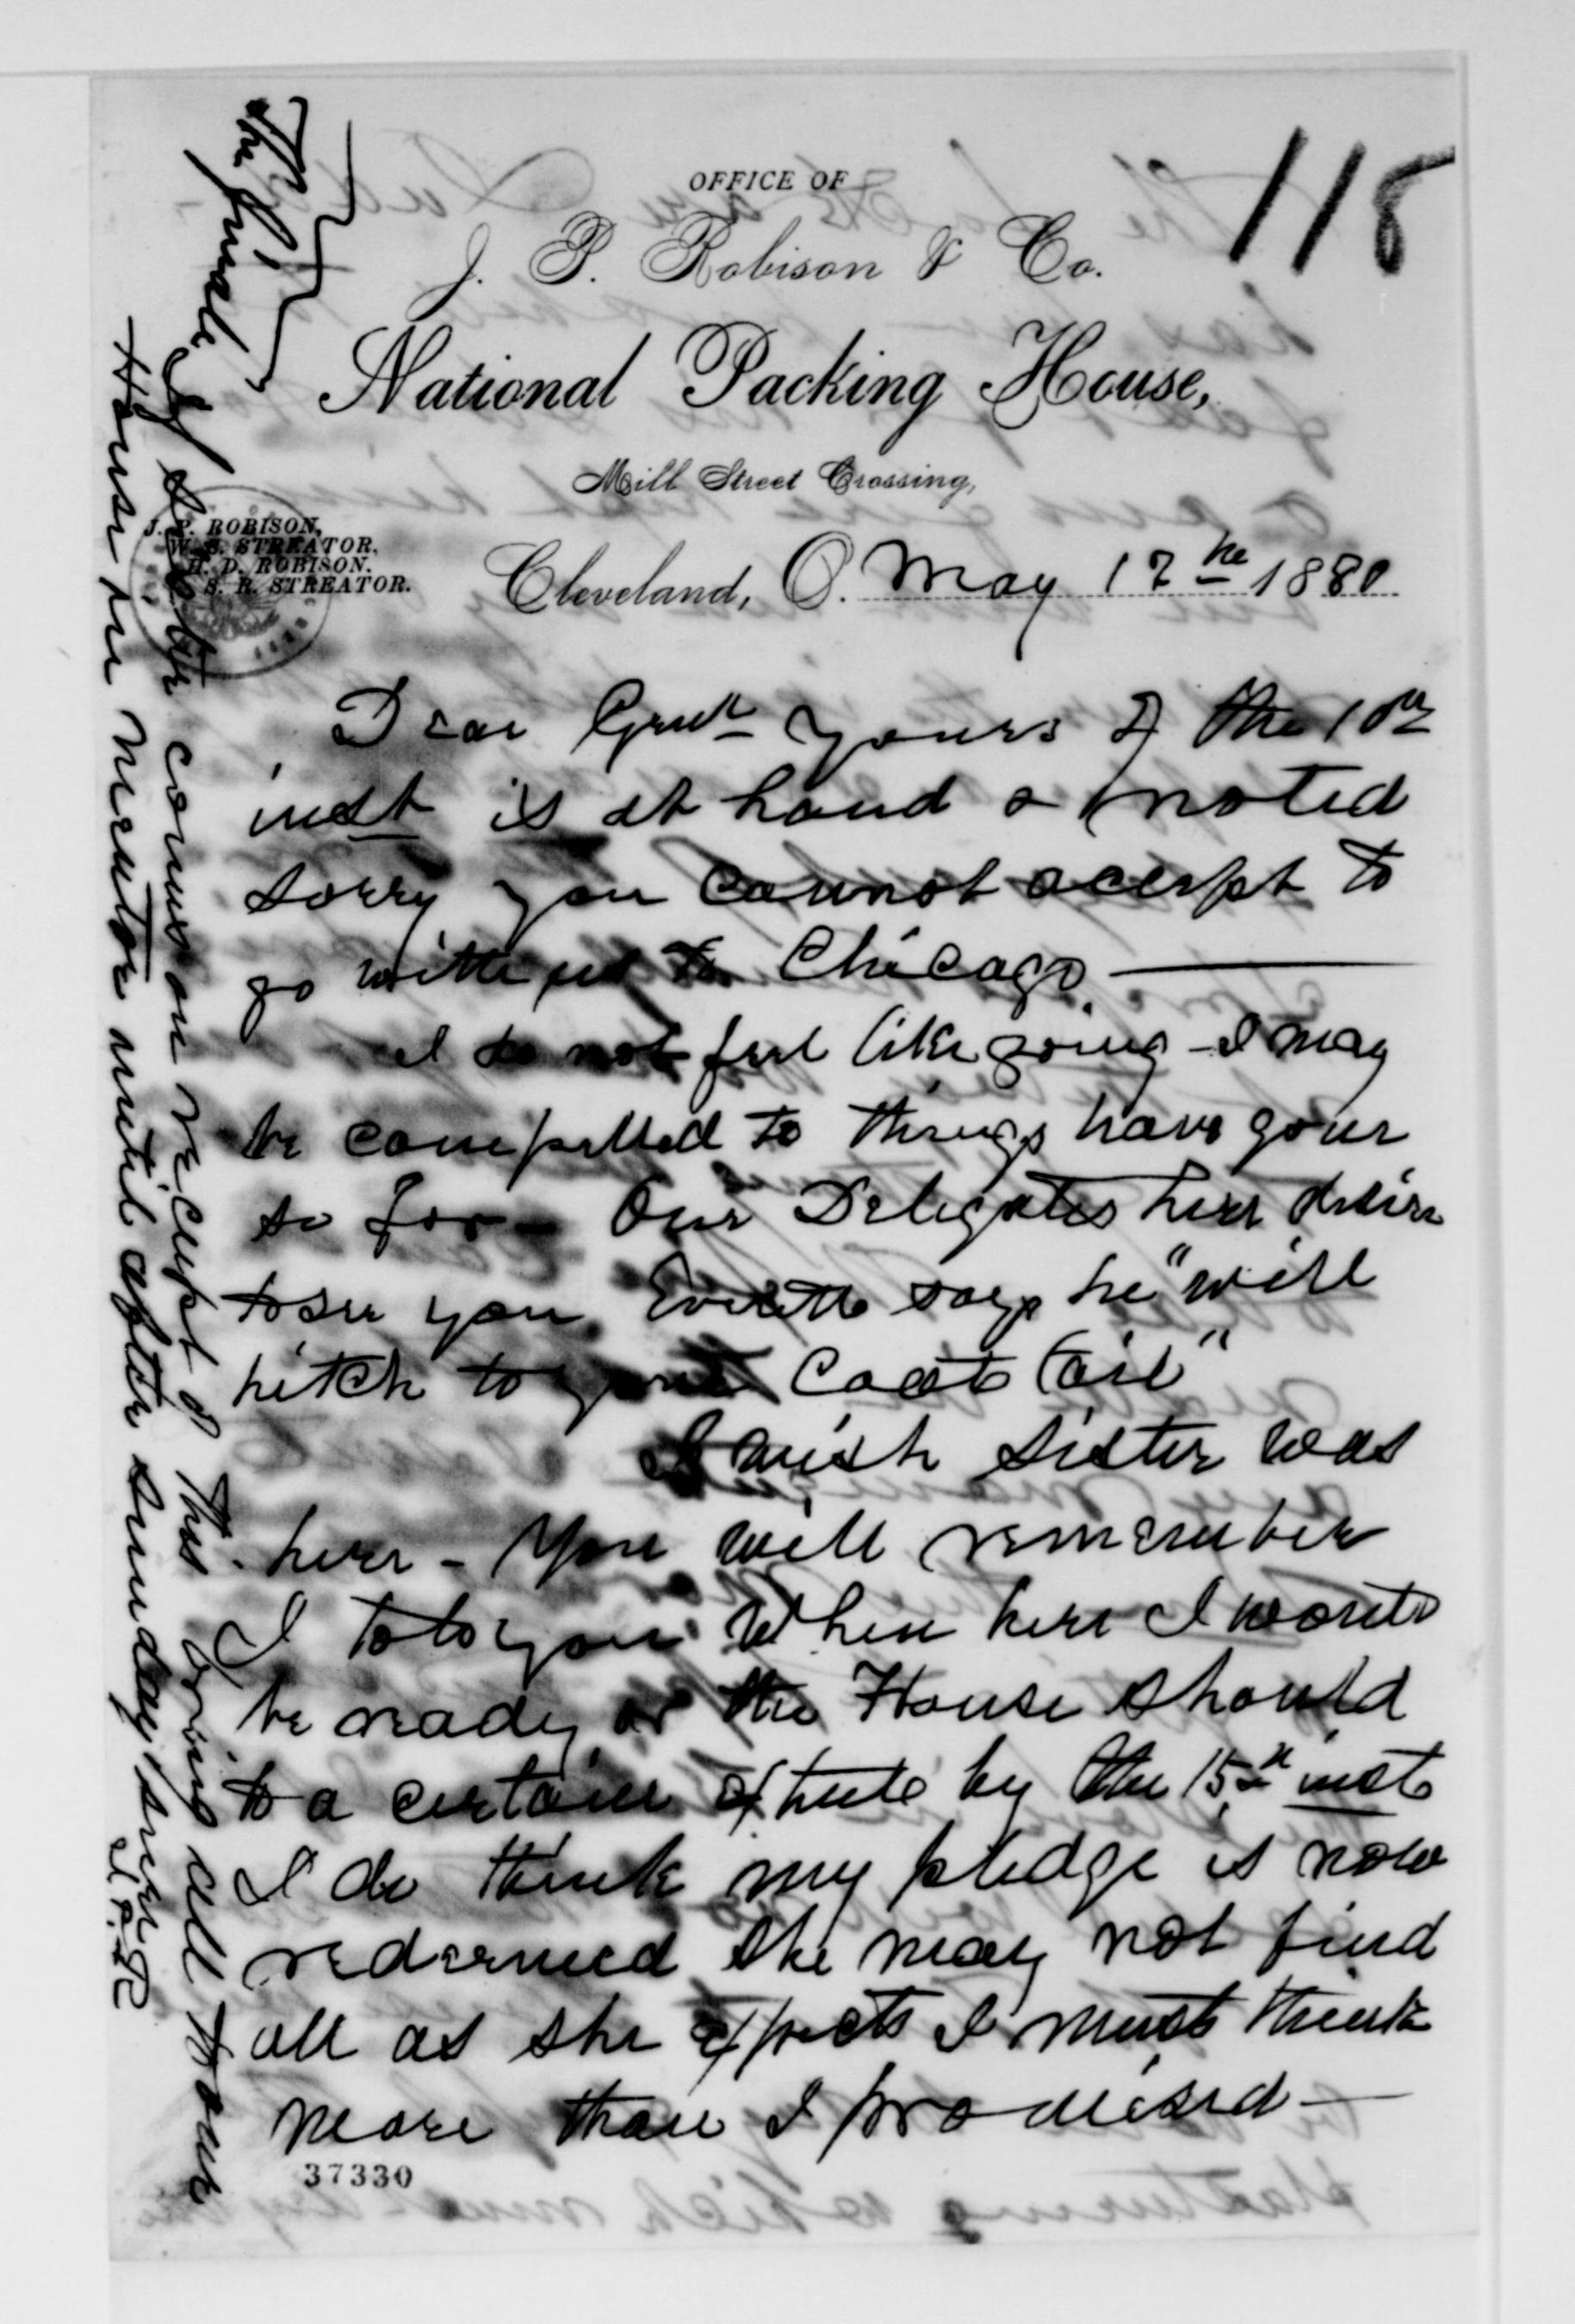 118
OFFICE OF
J. P. Robison & Co.
National Packing House,
Mill Street Crossing,
J. P. ROBISON,
W. S. STREATOR,
H. D. ROBISON.
S. R. STREATOR.
Cleveland, O. May 12th 1880
Dear Genl yours of the 10th
inst is at hand & noted
sorry you cannot accept to
go with us to Chicago.
I do not feel like going - I may
be compelled to things have gone
so far - Our Delegates here desire
to see you Everett says he "will
hitch to your Coat tail"
I wish Sister was
here - You will remember
I told you When here I would
be ready or the House should
to a certain extent by the 15th inst
I do think my pledge is now
redeemed she may not find
all as she expects I must think
more than I promised -
37330
If Sister comes on receipt of this bring all Home
House in Mentor until after Sunday
J.P.R.